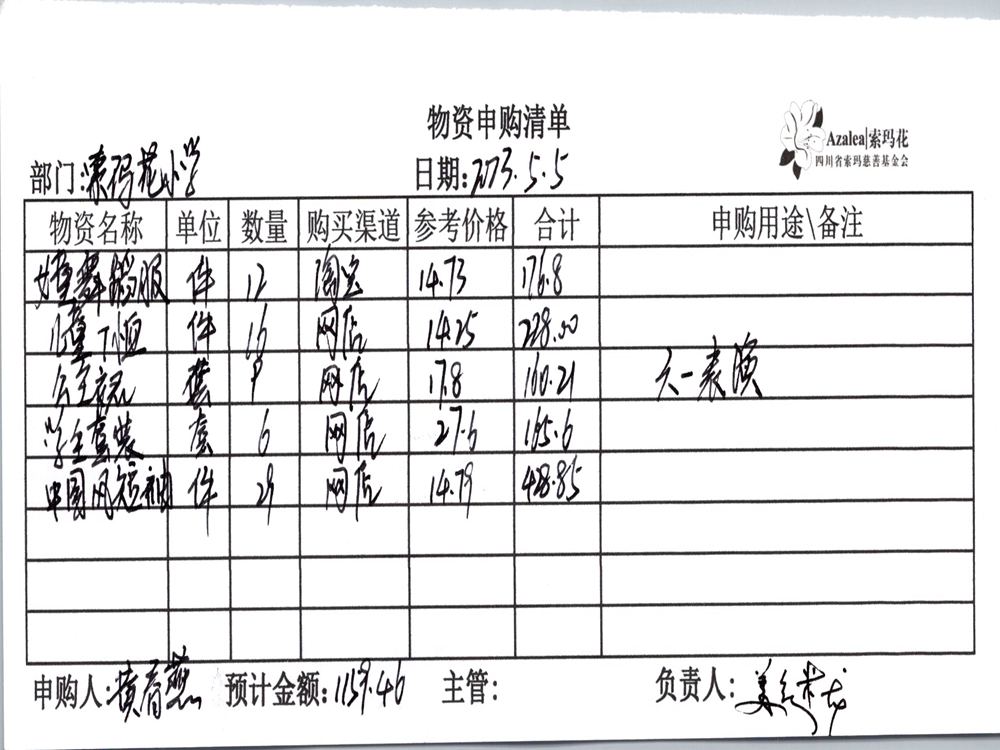 物资申购清单
Azalea|索玛花
四川省索玛慈善基金会
部门:索玛花小学 日期:2023.5.5
物资名称 单位 数量 购买渠道 参考价格 合计 申购用途\备注
女童舞蹈服 件 12 淘宝 14.73 176.8
儿童T恤 件 16 网店 14.25 228.00
公主裙 套 9 网店 17.8 160.21 六一表演
学生套装 套 6 网店 27.6 165.6
中国风短袖 件 29 网店 14.79 428.85
申购人:黄春燕 预计金额:1159.46 主管: 负责人: